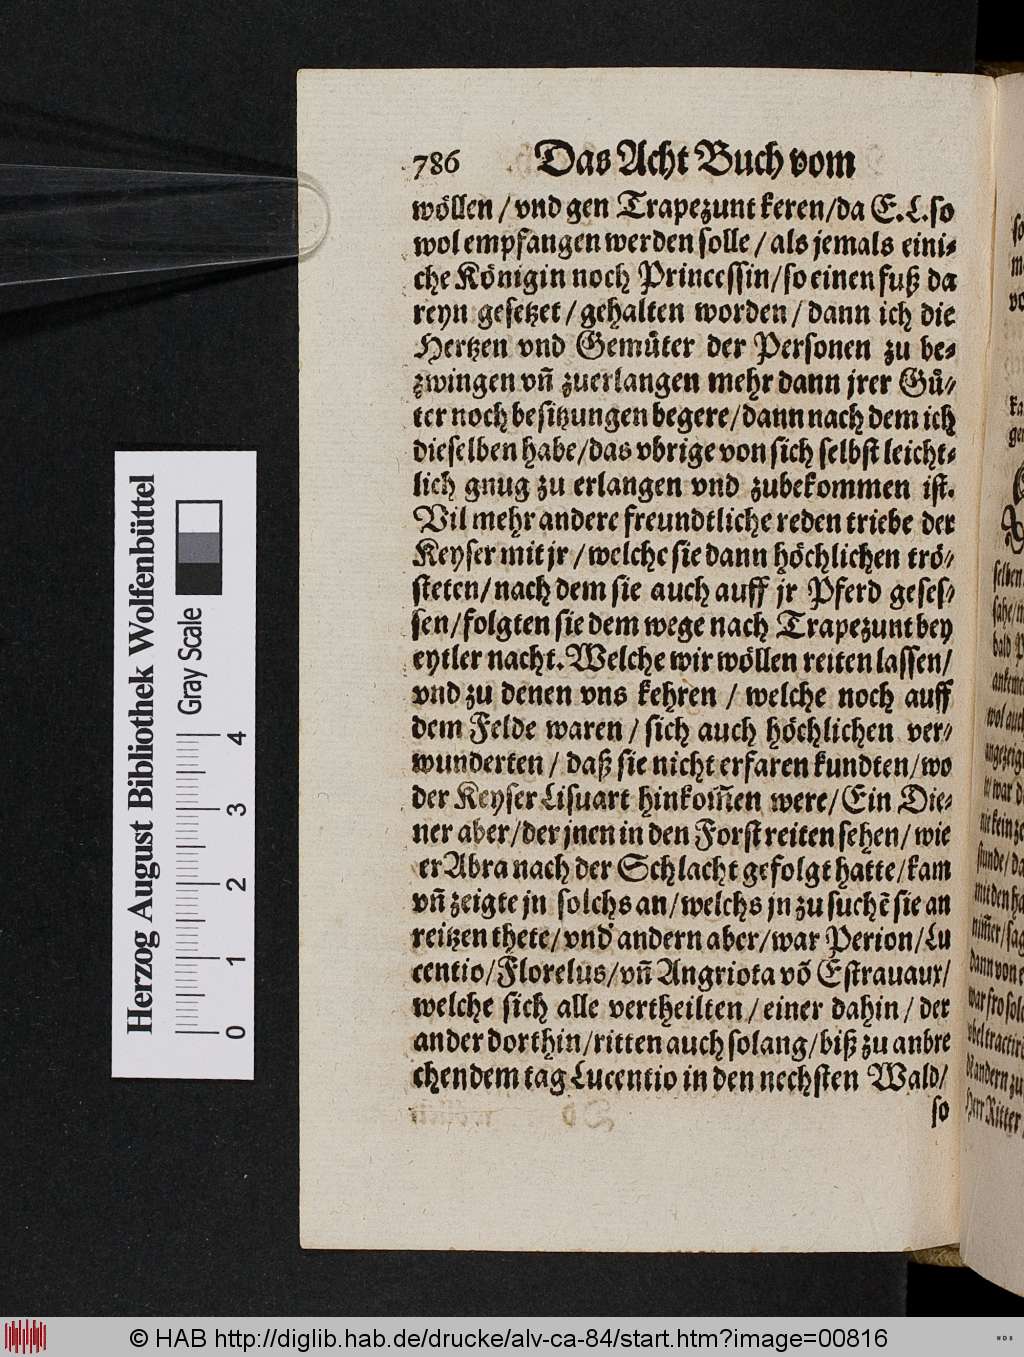 786 Das Acht Buch vom
wöllen / vnd gen Trapezunt keren/da E.L.so
wol empfangen werden solle / als jemals eini-
che Königin noch Princessin/so einen fuß da
reyn gesetzet / gehalten worden / dann ich die
Hertzen vnd Gemüter der Personen zu be-
zwingen vñ zuerlangen mehr dann jrer Gü-
ter noch besitzungen begere/dann nach dem ich
dieselben habe/das vbrige von sich selbst leicht-
lich gnug zu erlangen vnd zubekommen ist.
Vil mehr andere freundtliche reden triebe der
Keyser mit jr / welche sie dann höchlichen trö-
steten/ nach dem sie auch auff jr Pferd geses-
sen/folgten sie dem wege nach Trapezunt bey
eytler nacht. Welche wir wöllen reiten lassen/
vnd zu denen vns kehren / welche noch auff
dem Felde waren / sich auch höchlichen ver-
wunderten / daß sie nicht erfaren kundten/wo
der Keyser Lisuart hinkom̃en were/ Ein Die-
ner aber/der jnen in den Forst reiten sehen/ wie
er Abra nach der Schlacht gefolgt hatte/kam
vñ zeigte jn solchs an/welchs jn zu suchẽ sie an
reitzen thete/ vnd andern aber/war Perion/Lu
centio/Florelus/vñ Angriota võ Estrauaux/
welche sich alle vertheilten / einer dahin / der
ander dorthin/ritten auch solang/biß zu anbre
chendem tag Lucentio in den nechsten Wald/
so
Herzog August Bibliothek Wolfenbüttel
Gray Scale
0 1 2 3 4
© HAB http://diglib.hab.de/drucke/alv-ca-84/start.htm?image=00816